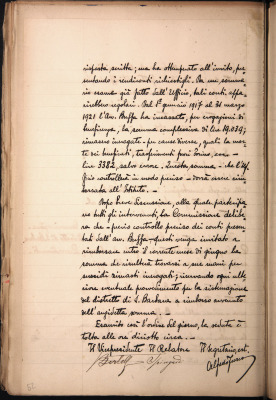 risposta scritta; ma ha ottemperato all'invito, pre-
sentando i rendiconti richiestigli. Da un somma-
rio esame già fatto dall'Ufficio, tali conti appa-
rirebbero regolari. Dal 1º gennaio 1917 al 31 marzo
1921 l'Avv. Buffa ha incassato, per erogazioni di
beneficenza, la somma complessiva di Lire 49.039;
rimasero inerogate - per cause diverse, quali la mor-
te dei beneficati, trasferimenti fuori zona, ecc -
Lire 3382, salvo errore. Questa somma, - che l'Uf-
ficio controllerà in modo preciso - dovrà essere rim-
borsata all'Istituto. -
Dopo breve discussione, alla quale partecipa-
no tutti gli intervenuti, la Commissione delibe-
ra che - previo controllo preciso dei conti presen-
tati dall'Avv. Buffa - questi venga invitato a
rimborsare entro il corrente mese di giugno la
somma che risulterà trovarsi a sue mani per
sussidi rimasti inerogati; rinviando ogni ulte-
riore eventuale provvedimento per la sistemazione
del distretto di S. Barbara a rimborso avvenuto
dell'anzidetta somma. -
Esaurito così l'ordine del giorno, la seduta è
tolta alle ore diciotto circa. -
Il Vicepresidente Il Relatore Il Segretario est.